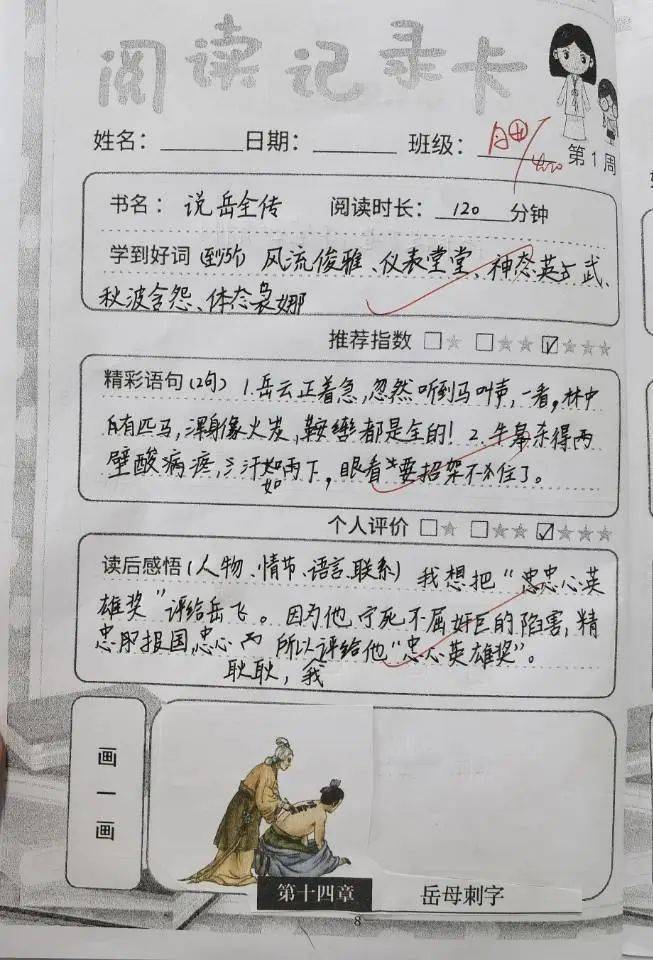 阅读记录卡
姓名：______日期：______ 班级：______
第1周
书名： 说岳全传 阅读时长： 120 分钟
学到好词 风流俊雅、仪表堂堂、神态英武、
秋波含怨、体态袅娜
推荐指数 □☆ □☆☆ ☑☆☆☆
精彩语句（2句） 1.岳云正着急，忽然听到马叫声，一看，林中
有匹马，浑身像火炭，鞍辔都是全的！ 2.牛皋杀得两
臂酸病疼，汗如雨下，眼看要招架不住了。
个人评价 □☆ □☆☆ ☑☆☆☆
读后感悟（人物、情节、语言、联系） 我想把“忠心英
雄奖”评给岳飞。因为他宁死不屈奸臣的陷害，精
忠报国，忠心 所以评给他“忠心英雄奖”。
耿耿，我
画一画
第十四章 岳母刺字
8